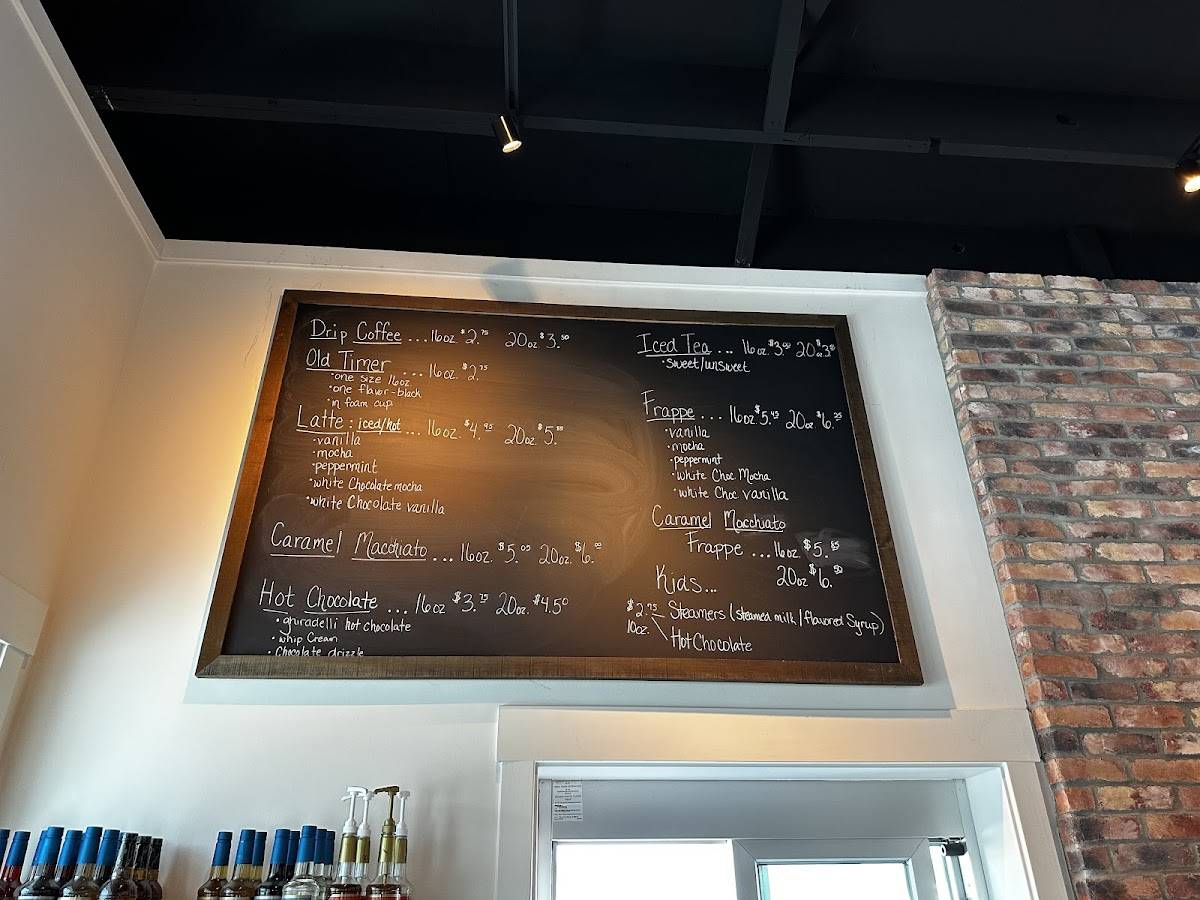 Drip Coffee ... 16oz $2.75 20oz $3.50
Old Timer ... 16oz. $2.75
• one size 16oz
• one flavor - black
• in foam cup
Latte : iced/hot ... 16oz. $4.95 20oz. $5.
• vanilla
• mocha
• peppermint
• white Chocolate mocha
• white Chocolate vanilla
Caramel Macchiato ... 16oz. $5. 20oz. $6.
Hot Chocolate ... 16oz $3.75 20oz. $4.50
• ghiradelli hot chocolate
• whip Cream
• Chocolate drizzle
Iced Tea ... 16oz. $3.00 20oz $3.
• sweet/unsweet
Frappe ... 16oz $5.45 20oz $6.25
• vanilla
• mocha
• peppermint
• white Choc Mocha
• white Choc vanilla
Caramel Macchiato
Frappe ... 16oz. $5.
20oz $6.50
Kids...
$2.95 Steamers (steamed milk / flavored Syrup)
10oz. Hot Chocolate